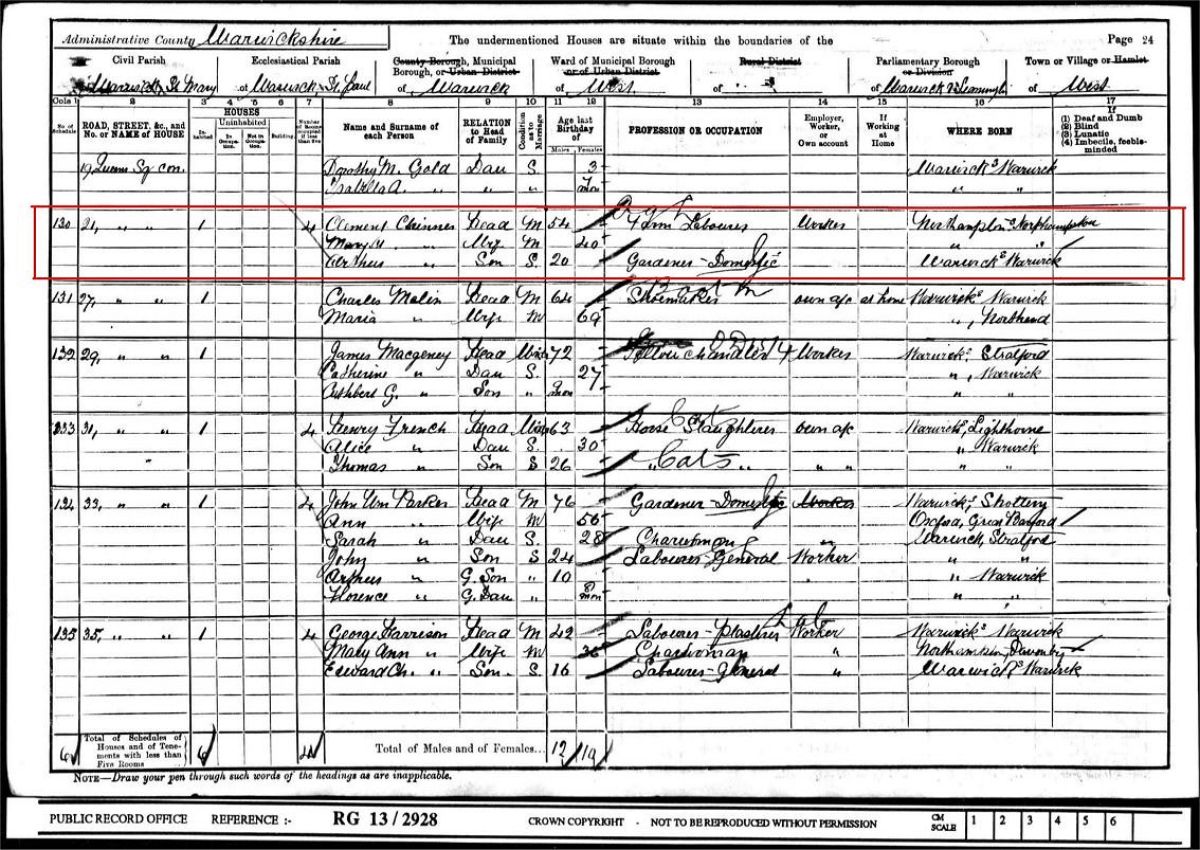 Administrative County Warwickshire The undermentioned Houses are situate within the boundaries of the Page 24
Civil Parish Ecclesiastical Parish County Borough, Municipal Borough, or Urban District Ward of Municipal Borough or of Urban District Rural District Parliamentary Borough or Division Town or Village or Hamlet
Warwick St Mary of Warwick St Paul of Warwick of West of of Warwick & Leamington of West
Cols 1 2 3 4 5 6 7 8 9 10 11 12 13 14 15 16 17
No. of Schedule ROAD, STREET, &c., and No. or NAME of HOUSE HOUSES Inhabited Uninhabited In Occupation Not in Occupation Building Number of Rooms occupied if less than five Name and Surname of each Person RELATION to Head of Family Condition as to Marriage Age last Birthday of Males Females PROFESSION OR OCCUPATION Employer, Worker, or Own account If Working at Home WHERE BORN (1) Deaf and Dumb (2) Blind (3) Lunatic (4) Imbecile, feeble-minded
19, Queens Sq con. Dorothy M. Gold Dau S. 3 Warwicks Warwick
Isabella A. " " " 7 mon " "
130 21, " " 1 4 Clement Chinner Head M 54 Farm Labourer Worker Northampton Northampton
Mary " Wife M 40 " "
Arthur " Son S. 20 Gardener - Domestic Warwicks Warwick
131 27, " " 1 Charles Malin Head M 64 Shoemaker own a/c at home Warwicks Warwick
Maria " Wife M 69 " Northend
132 29, " " 1 James Macgeney Head Wid 72 Tallow Chandler Worker Warwicks Stratford
Catherine " Dau S. 27 " Warwick
Cuthbert G. " Son " mon
133 31, " " 1 4 Henry French Head Wid 63 Horse Slaughterer own a/c Warwicks, Lighthorne
Alice " Dau S. 30 " Warwick
Thomas " Son S 26 " Cats " " " " "
134 33, " " 1 4 John Wm Parker Head M 76 Gardener - Domestic Worker Warwicks Shottery
Ann " Wife M 56 Oxford, Great Barford
Sarah " Dau S. 28 Charwoman " Warwick, Stratford
John " Son S 24 Labourer - General Worker " "
Arthur " G. Son " 10 " Warwick
Florence " G. Dau " 8 mon " "
135 35, " " 1 4 George Harrison Head M 42 Labourer - Plasterer Worker Warwicks Warwick
Mary Ann " Wife M 36 Charwoman " Northampton, Daventry
Edward Ch. " Son. S. 16 Labourer - General " Warwicks Warwick
6 Total of Schedules of Houses and of Tenements with less than Five Rooms 6 4 Total of Males and of Females... 12 10
NOTE—Draw your pen through such words of the headings as are inapplicable.
PUBLIC RECORD OFFICE REFERENCE :- RG 13 / 2928 CROWN COPYRIGHT - NOT TO BE REPRODUCED WITHOUT PERMISSION CM SCALE 1 2 3 4 5 6